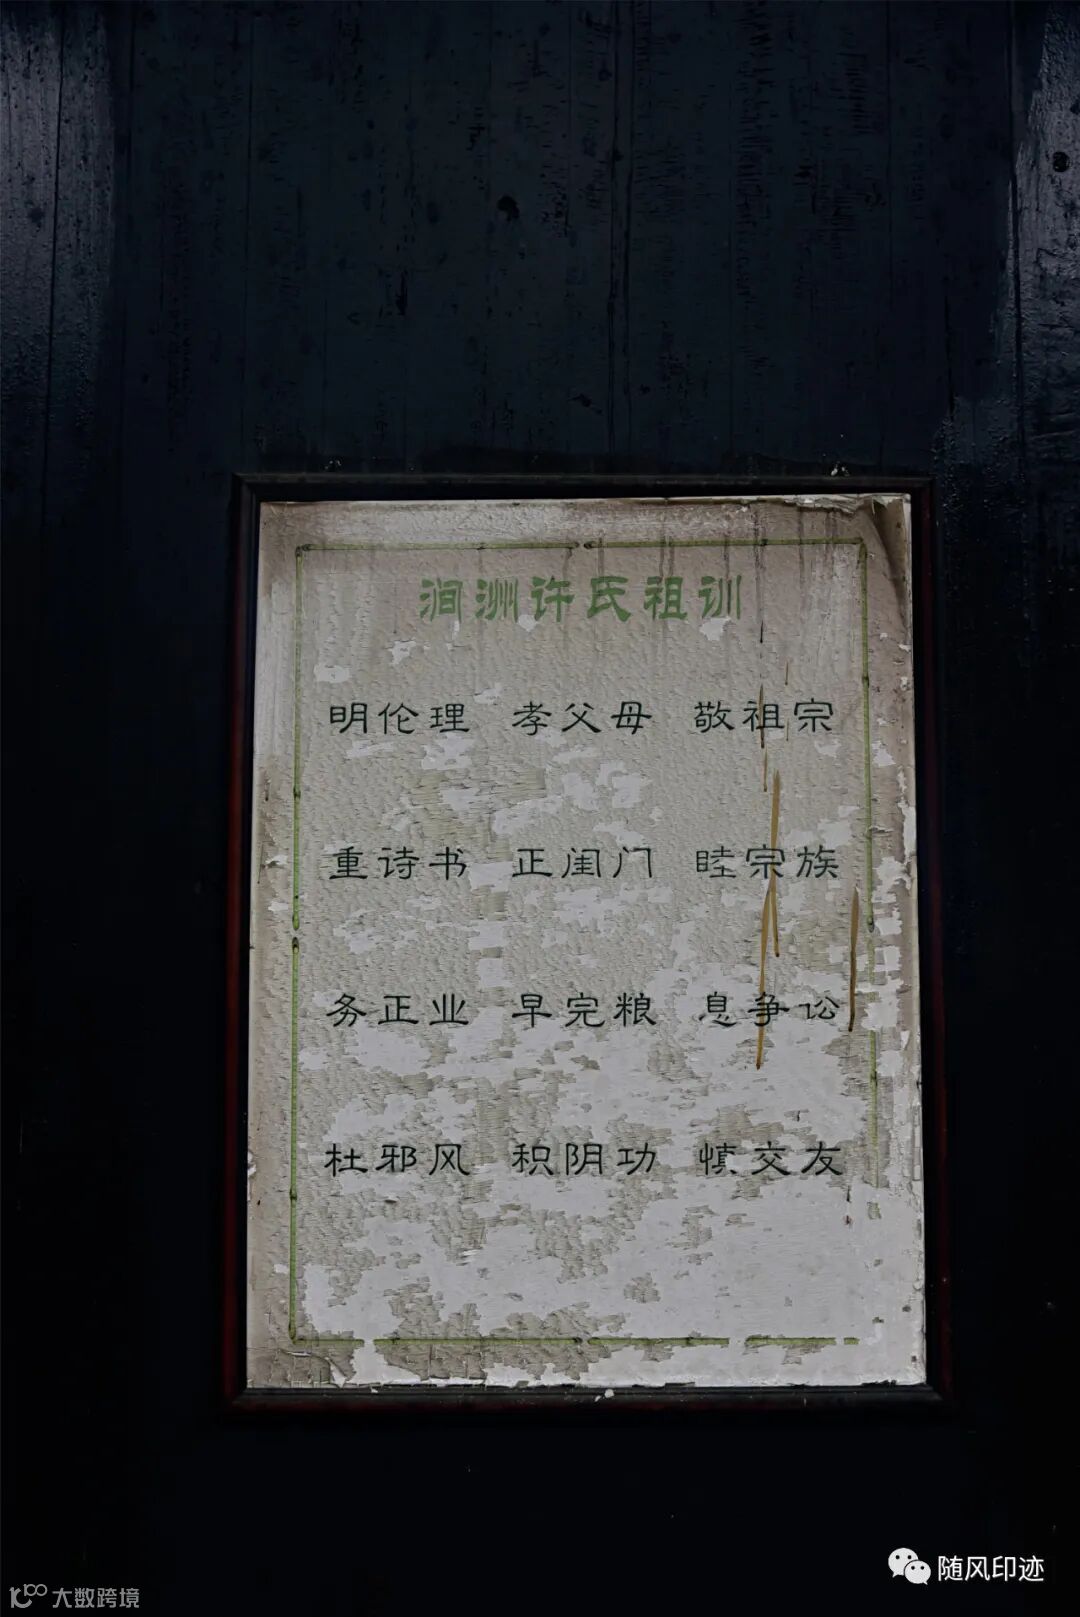 涧洲许氏祖训
明伦理 孝父母 敬祖宗
重诗书 正闺门 睦宗族
务正业 早完粮 息争讼
杜邪风 积阴功 慎交友
随风印迹
大数跨境